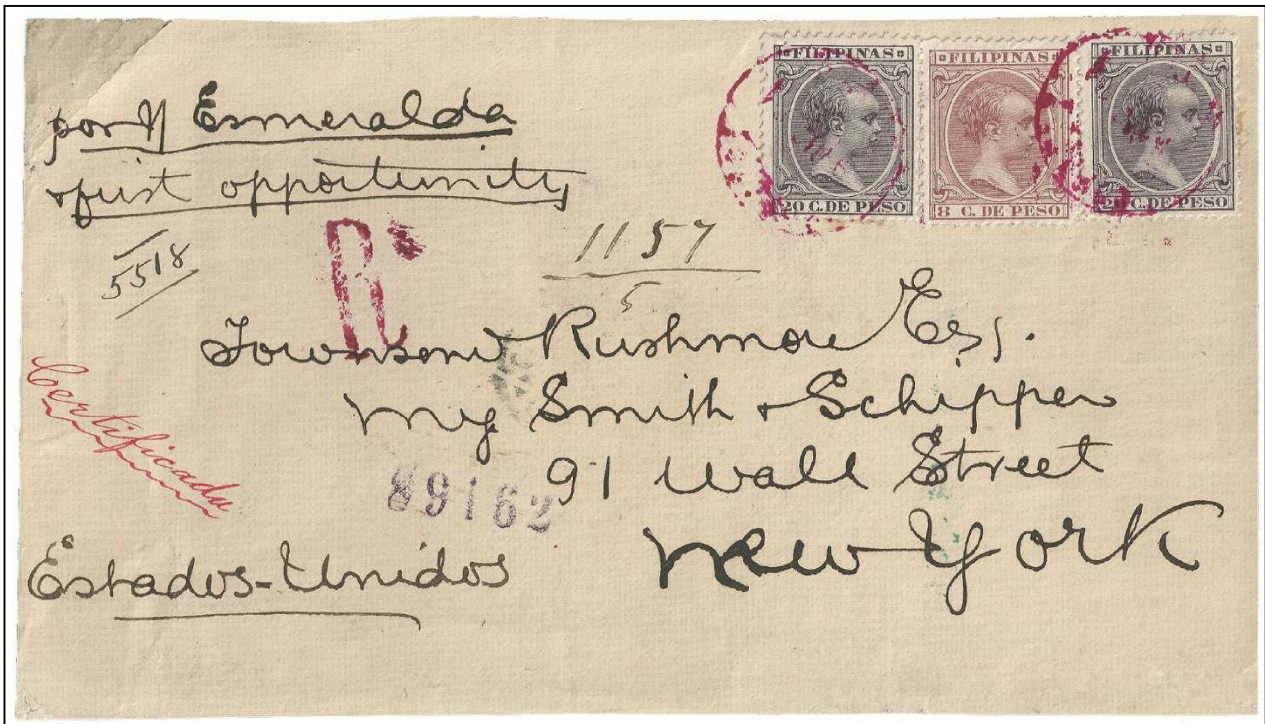 FILIPINAS
20 C. DE PESO
FILIPINAS
8 C. DE PESO
FILIPINAS
20 C. DE PESO
Esmeralda
first opportunity
5518
R
1157
5
Townsend Rushmore Esq.
Smith & Schipper
91 Wall Street
New York
Certificada
89162
Estados-Unidos